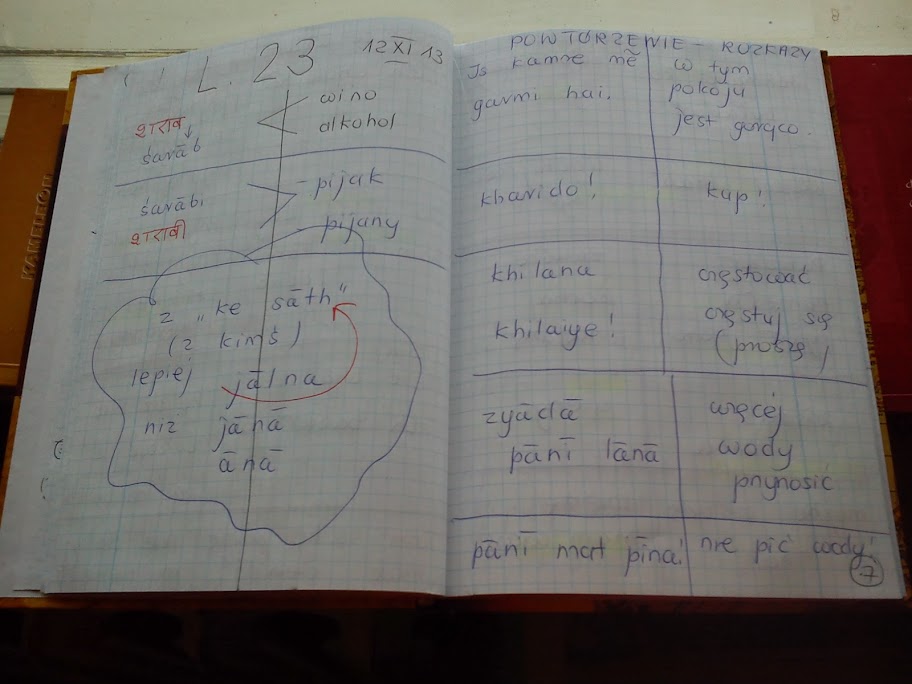 L. 23 12 XI 13
शराब wino
śarāb alkohol
śarābi pijak
शराबी pijany
z „ke sāth"
(z kimś)
lepiej jālna
niż jānā
ānā
POWTÓRZENIE - ROZKAZY
Is kamre mē w tym
garmi hai. pokoju
jest gorąco.
kharido! kup!
khilana częstować
khilaiye! częstuj się
(proszę)
zyādā więcej
pānī lānā wody
przynosić
pānī mat pīna! nie pić wody!
7
KAMELEON